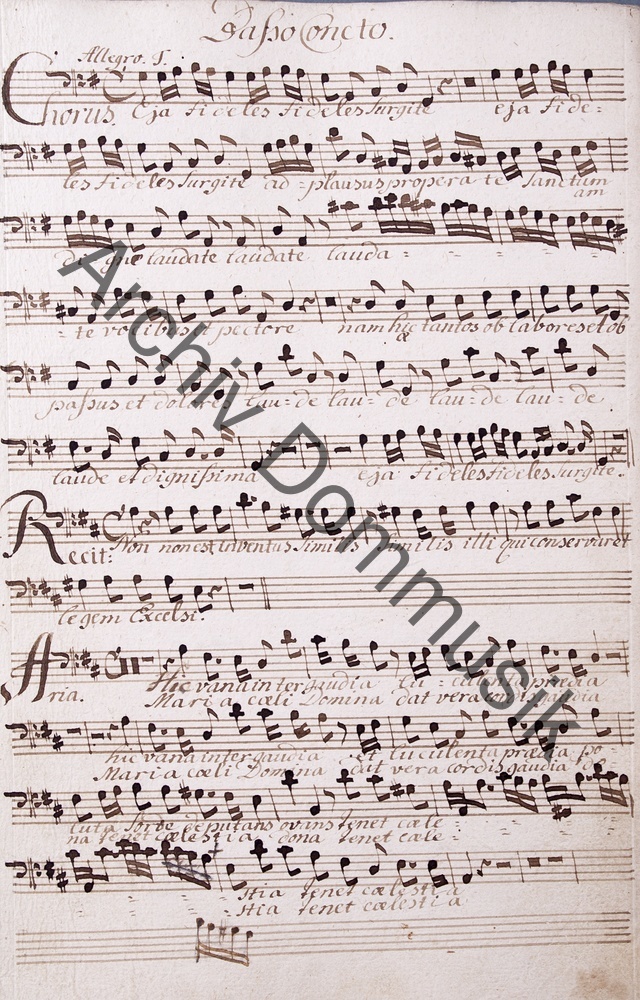 Basso Conc to.
Allegro.
Chorus. Eja fideles fideles surgite eja fide=
les fideles surgite ad=plausus propera te Sanctum
am
di gne laudate laudate lauda=
=te vocibus pectore nam hic tantos ob labores et ob
passus et dolores lau=de lau=de lau=de lau=de
laude et dignissima eja fideles fideles surgite.
Recit: Non non est inventus Similis Similis illi qui conservaret
legem Excelsi.
Aria. Hic vana inter gaudia praedia
Maria coeli Domina dat vera cordis gaudia
hic vana inter gaudia et luculenta praedia po=
Maria coeli Domina dat vera cordis gaudia
luta sorde deputans ovans tenet caele
na tenet caelestia dona tenet caele=
Stia tenet caelestia
Stia tenet caelestia
Archiv Dommusik